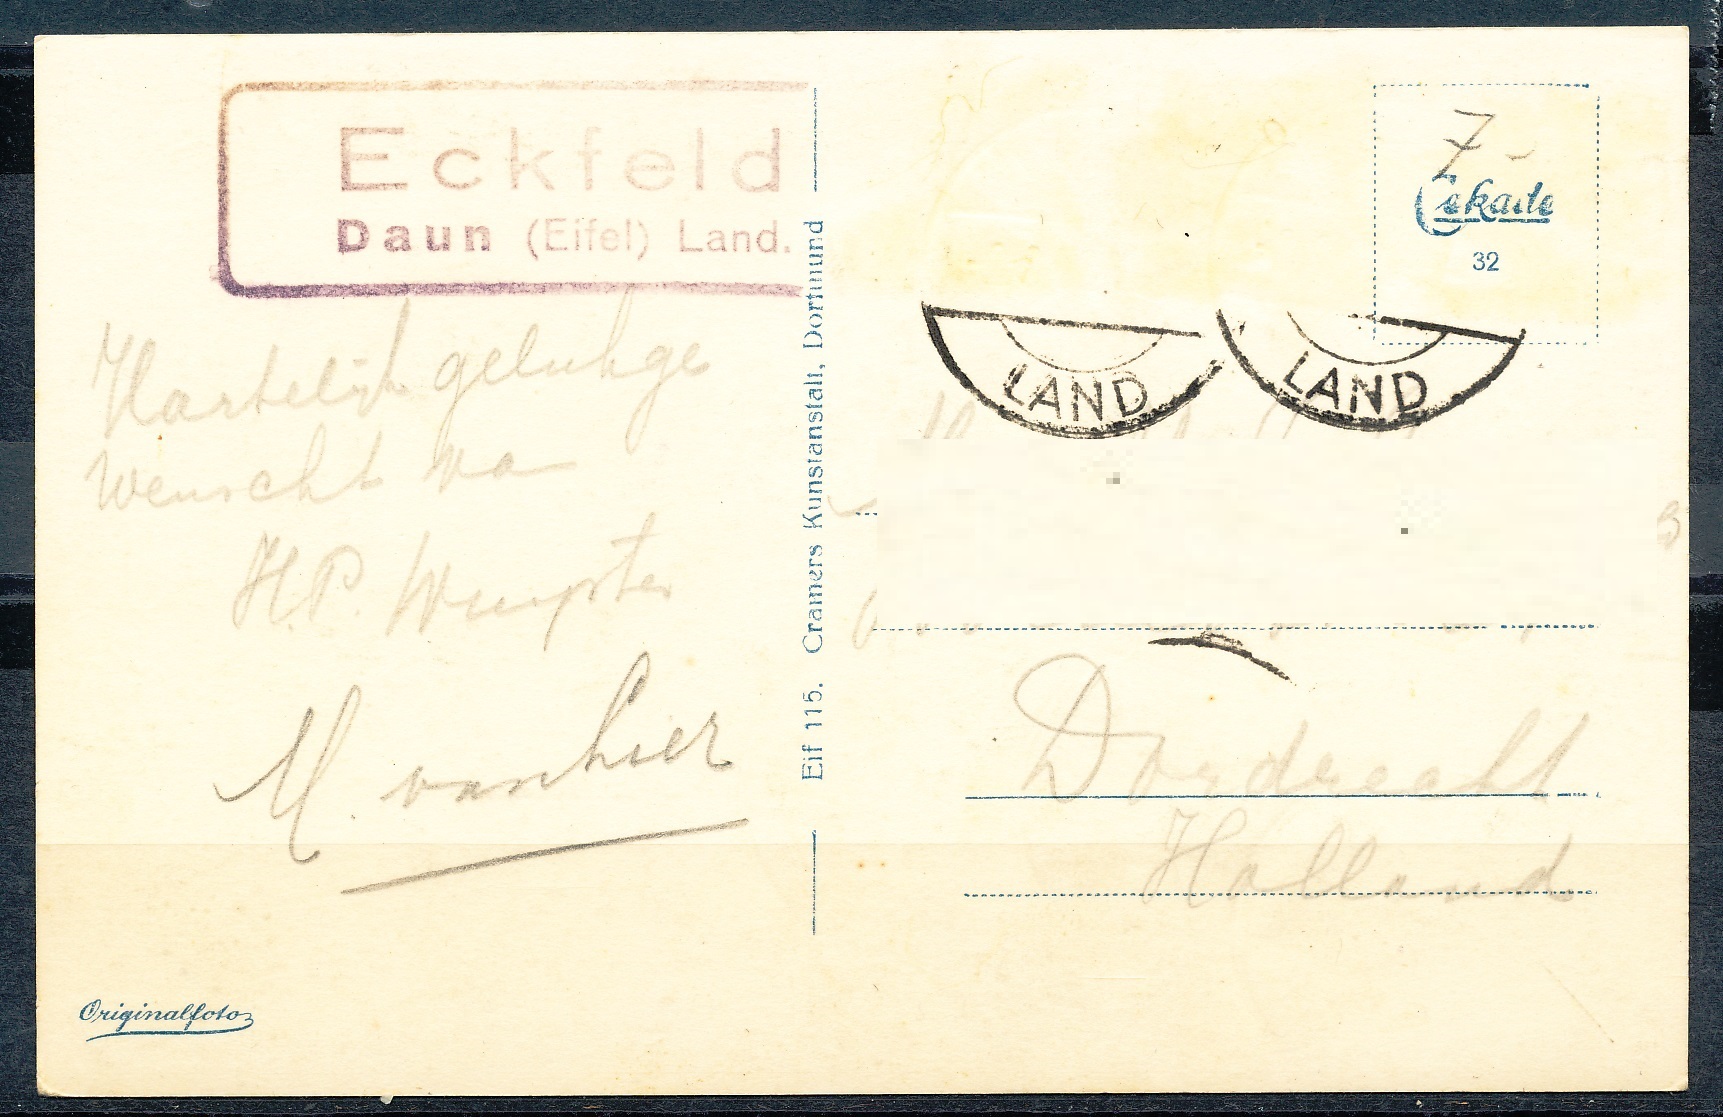 Eckfeld
Daun (Eifel) Land.
Hartelijk gelukge
Wenscht va
H.P.
M. van hier
Originalfoto
Eif 115. Cramers Kunstanstalt, Dortmund
7-
Cekade
32
LAND
LAND
Dordrecht
Holland